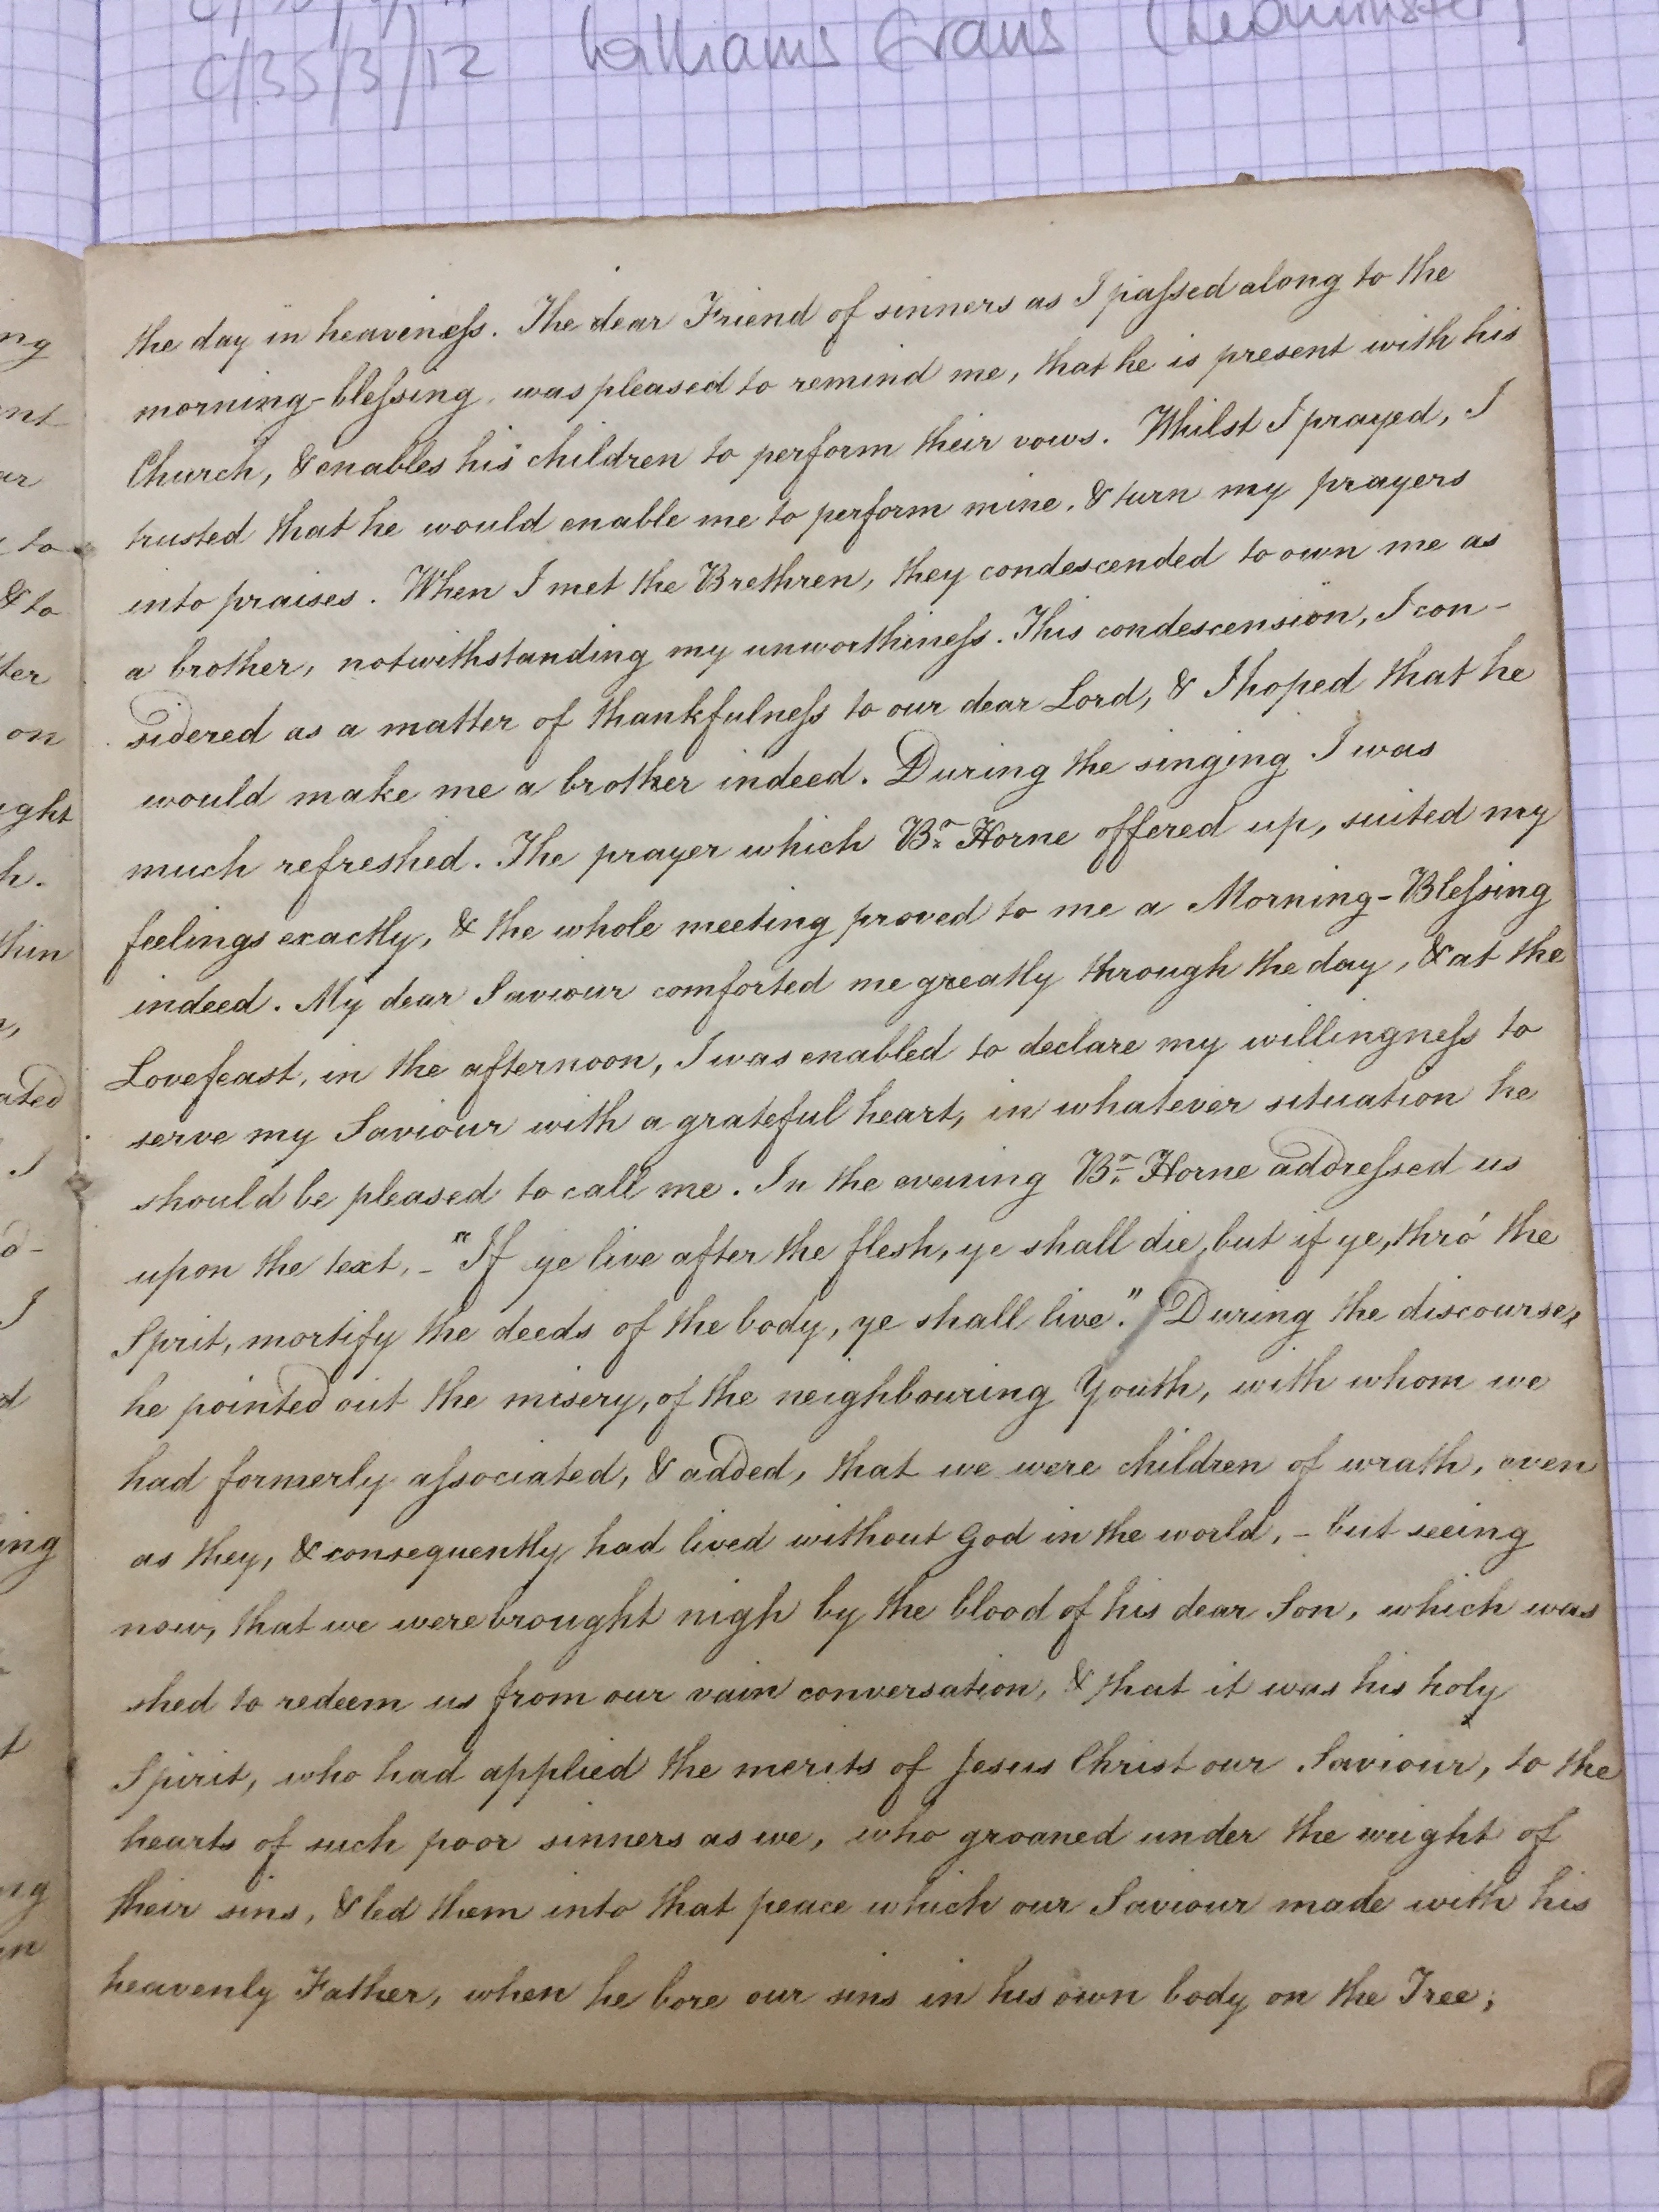 C/35/3/12 Williams Evans (Leominster)
the day in heaviness. The dear Friend of sinners as I passed along to the
morning-blessing, was pleased to remind me, that he is present with his
Church, & enables his children to perform their vows. Whilst I prayed, I
trusted that he would enable me to perform mine, & turn my prayers
into praises. When I met the Brethren, they condescended to own me as
a brother, notwithstanding my unworthiness. This condescension, I con-
sidered as a matter of thankfulness to our dear Lord, & I hoped that he
would make me a brother indeed. During the singing I was
much refreshed. The prayer which Br. Horne offered up, suited my
feelings exactly, & the whole meeting proved to me a Morning-Blessing
indeed. My dear Saviour comforted me greatly through the day, & at the
Lovefeast, in the afternoon, I was enabled to declare my willingness to
serve my Saviour with a grateful heart, in whatever situation he
should be pleased to call me. In the evening Br. Horne addressed us
upon the text, - "If ye live after the flesh, ye shall die, but if ye, thro' the
Sprit, mortify the deeds of the body, ye shall live." During the discourse,
he pointed out the misery, of the neighbouring Youth, with whom we
had formerly associated, & added, that we were children of wrath, even
as they, & consequently had lived without God in the world, - but seeing
now, that we were brought nigh by the blood of his dear Son, which was
shed to redeem us from our vain conversation, & that it was his holy
Spirit, who had applied the merits of Jesus Christ our Saviour, to the
hearts of such poor sinners as we, who groaned under the weight of
their sins, & led them into that peace which our Saviour made with his
heavenly Father, when he bore our sins in his own body on the Tree;